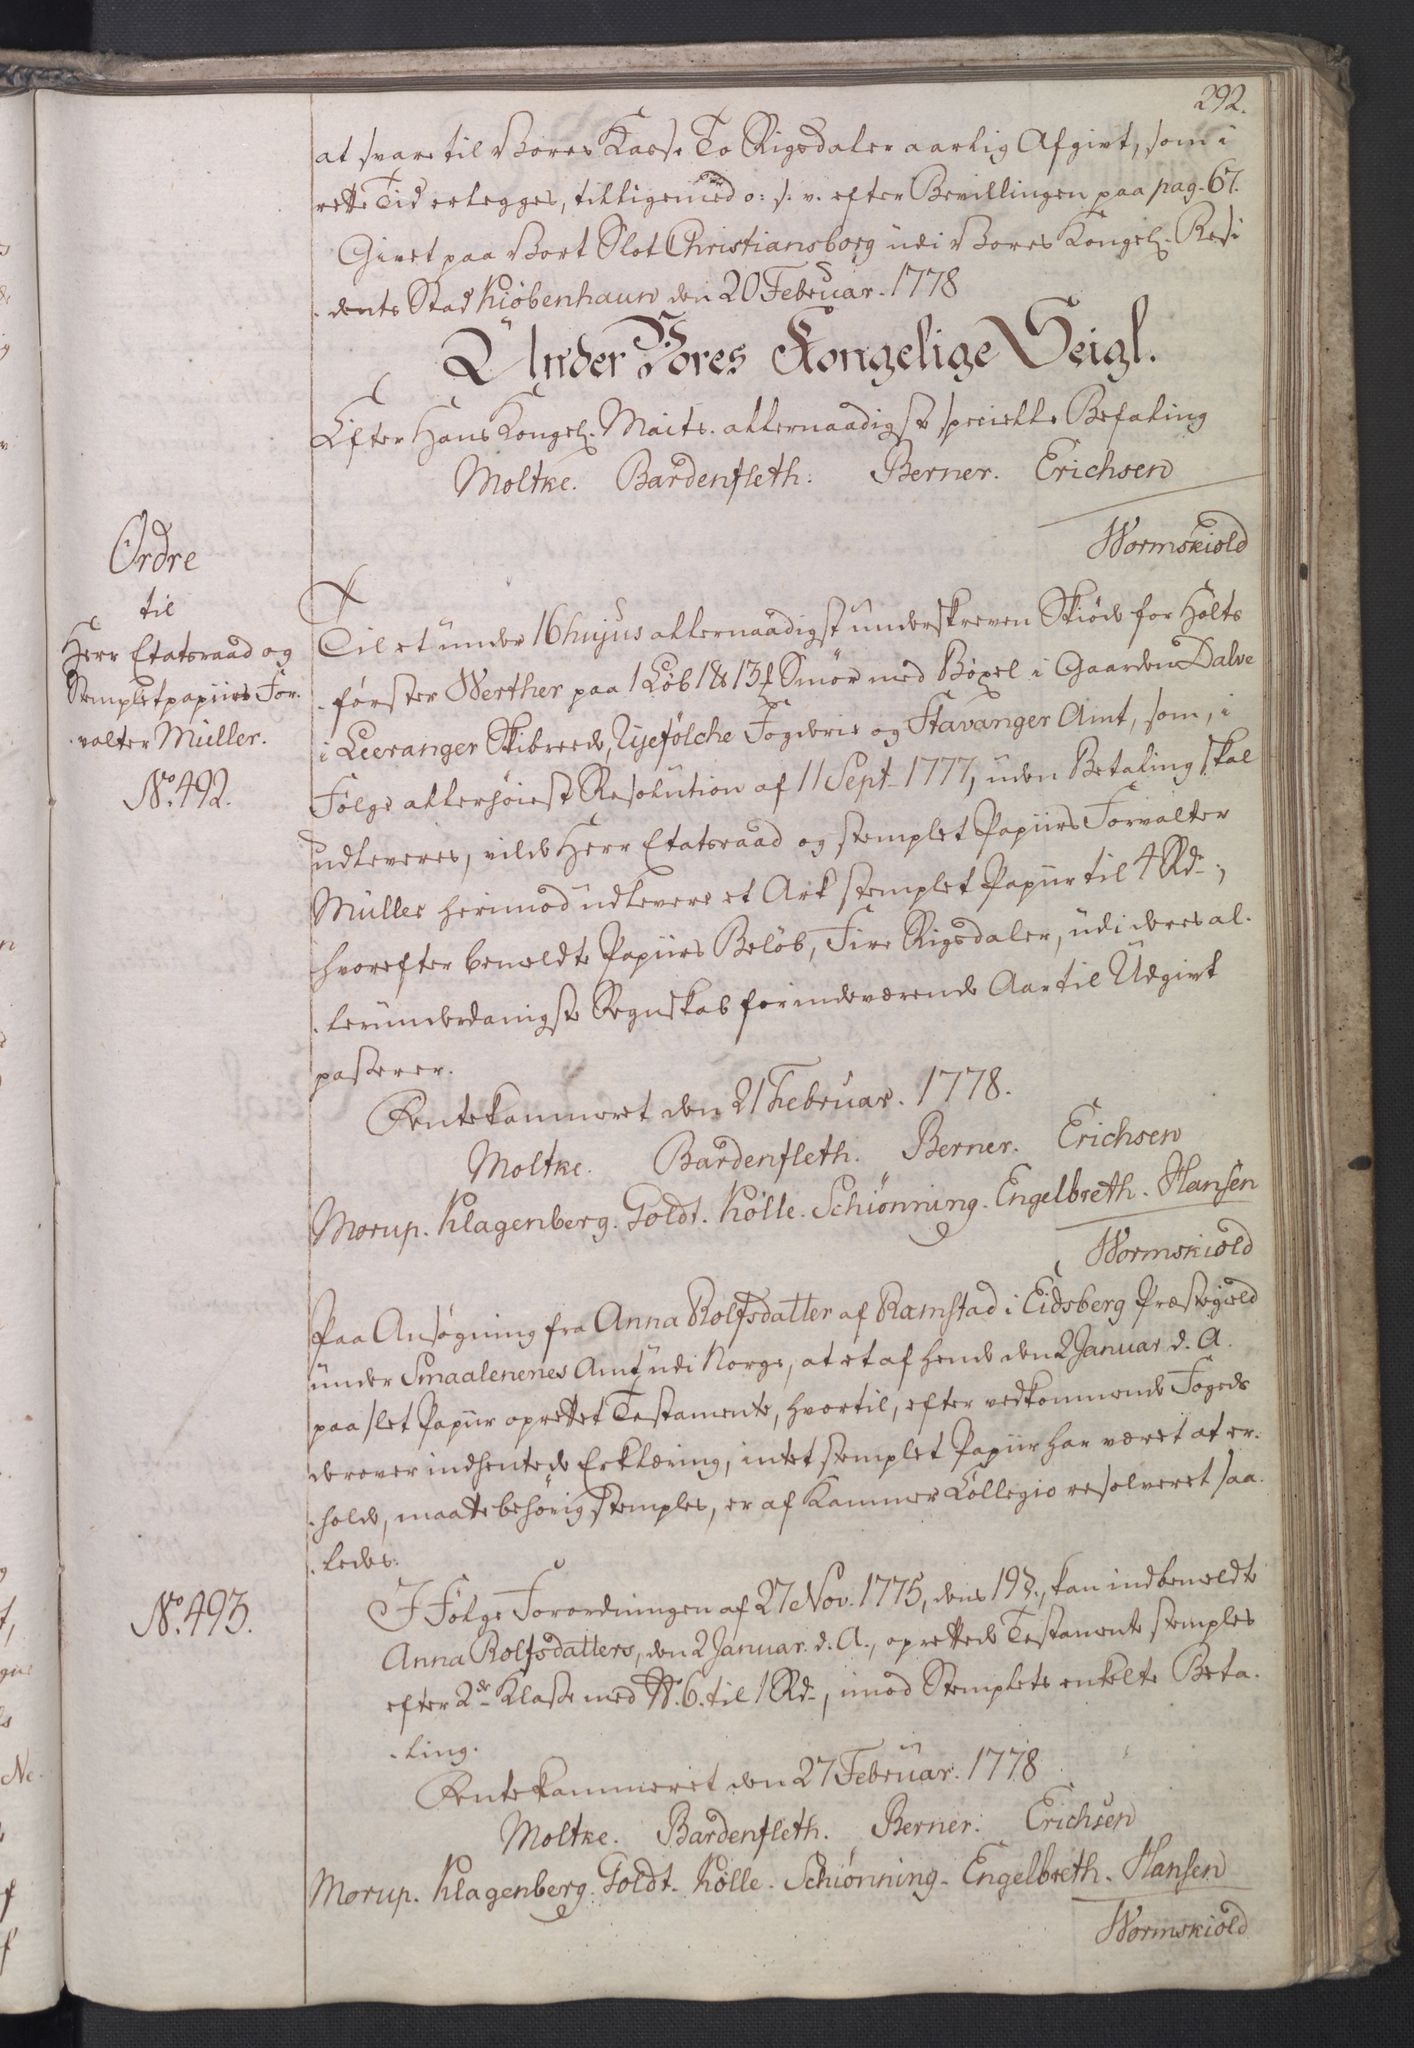 292.
at svare til Vores Kasse To Rigsdaler aarlig Afgivt, som i
rette Tid erlegges, tilligemed o: s. v. efter Bevillingen paa pag. 67.
Givet paa Vort Slot Christiansborg udi Vores Kongel. Resi
dents Stad Kiöbenhaun den 20 Februar. 1778
Under Vores Kongelige Seigl.
Efter Hans Kongel. Maits. allernaadigste specielle Befaling
Moltke. Bardenfleth. Berner. Erichsen
Wormskiold
Ordre
til
Herr Etatsraad og
Stempletpapiirs For-
valter Müller.
No. 492.
Til et under 16 hujus allernaadigst underskreven Skiöde for Holts
förster Werther paa 1 Löb 1 ℔ 13 Smör med Böxel i Gaarden Dalve
i Leeranger Skibreede, Ryefölche Fogderie og Stavanger Amt, som, i
Fölge allerhöieste Resolution af 11 Sept. 1777, uden Betaling skal
udleveres, vilde Herr Etatsraad og stemplet Papiirs Forvalter
Müller herimod udlevere et Ark stemplet Papiir til 4 Rd.,
hvorefter bemeldte Papiirs Belöb, Fire Rigsdaler, udi deres al-
lerunderdanigste Regnskab for indeværende Aar til Udgivt
passerer.
Rentekammeret den 21 Februar. 1778.
Moltke. Bardenfleth. Berner. Erichsen
Morup. Klagenberg. Goldt. Kölle. Schiönning. Engelbreth. Hansen
Wormskiold
Paa Ansögning fra Anna Rolfsdatter af Ramstad i Eidsberg Præstegield
under Smaalenenes Amt udi Norge, at et af hende den 2 Januar d. A.
paa slet Papiir oprettet Testamente, hvortil, efter vedkommende Fogeds
derover indhentede Erklæring, intet stemplet Papiir har været at er-
holde, maatte behörig stemples, er af Kammer Collegio resolveret saa-
ledes:
No. 493.
I Fölge Forordningen af 27 Nov. 1775, dens 19 §., kan indbemeldte
Anna Rolfsdatters, den 2 Januar d. A., oprettede Testamente stemples
efter 2de Klasse med No. 6. til 1 Rd., imod Stemplets enkelte Beta-
ling.
Rentekammeret den 27 Februar. 1778
Moltke. Bardenfleth. Berner. Erichsen
Morup. Klagenberg. Goldt. Kölle. Schiönning. Engelbreth. Hansen
Wormskiold